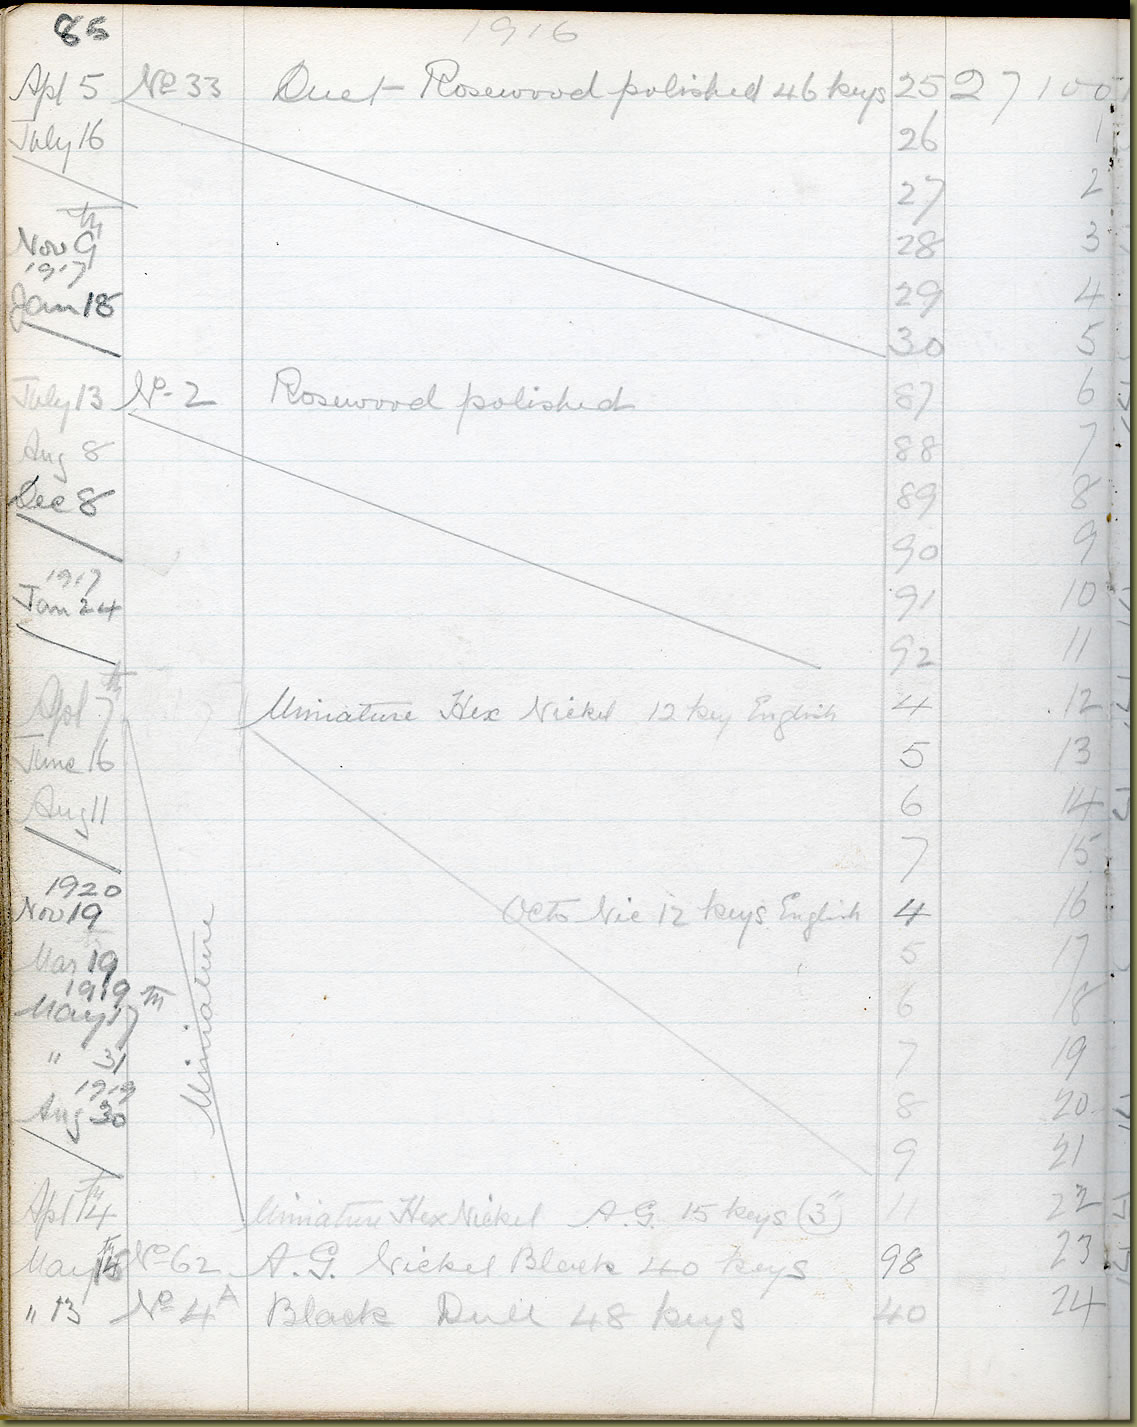 85 1916
Apl 5 No 33 Duet Rosewood polished 46 keys 25 27100
July 16 26 1
27 2
Nov 9th 28 3
1917
Jan 18 29 4
30 5
July 13 No 2 Rosewood polished 87 6
Aug 8 88 7
Dec 8 89 8
90 9
1917
Jan 24 91 10
92 11
Apl 7th Miniature Hex Nickel 12 key English 4 12
June 16 5 13
Aug 11 6 14
7 15
1920
Nov 19 Octo Nic 12 keys English 4 16
Mar 19 5 17
1919
May 17th 6 18
" 31 7 19
1919
Aug 30 8 20
9 21
Miniature
Apl 14th Miniature Hex Nickel A.G. 15 keys (3") 11 22
May No 62 A.G. Nickel Black 40 keys 98 23
" 13 No 4A Black Dull 48 keys 40 24